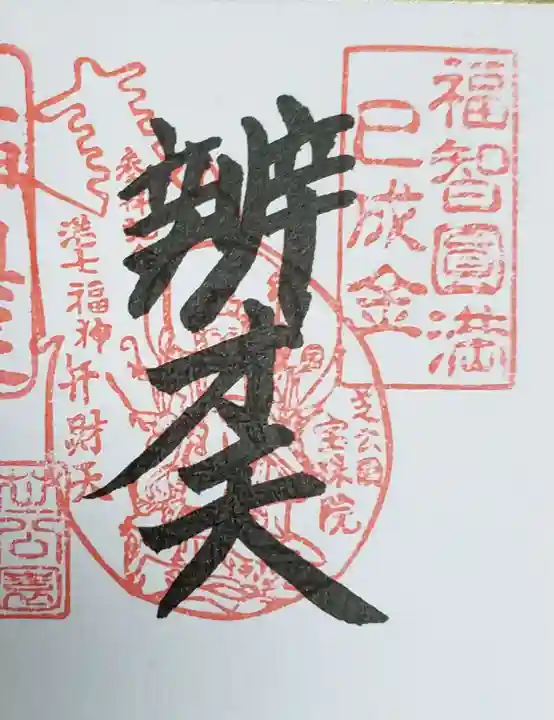 福智圓満
巳成金
辨才天
芝公園
宝珠院
港七福神弁財天
芝公園